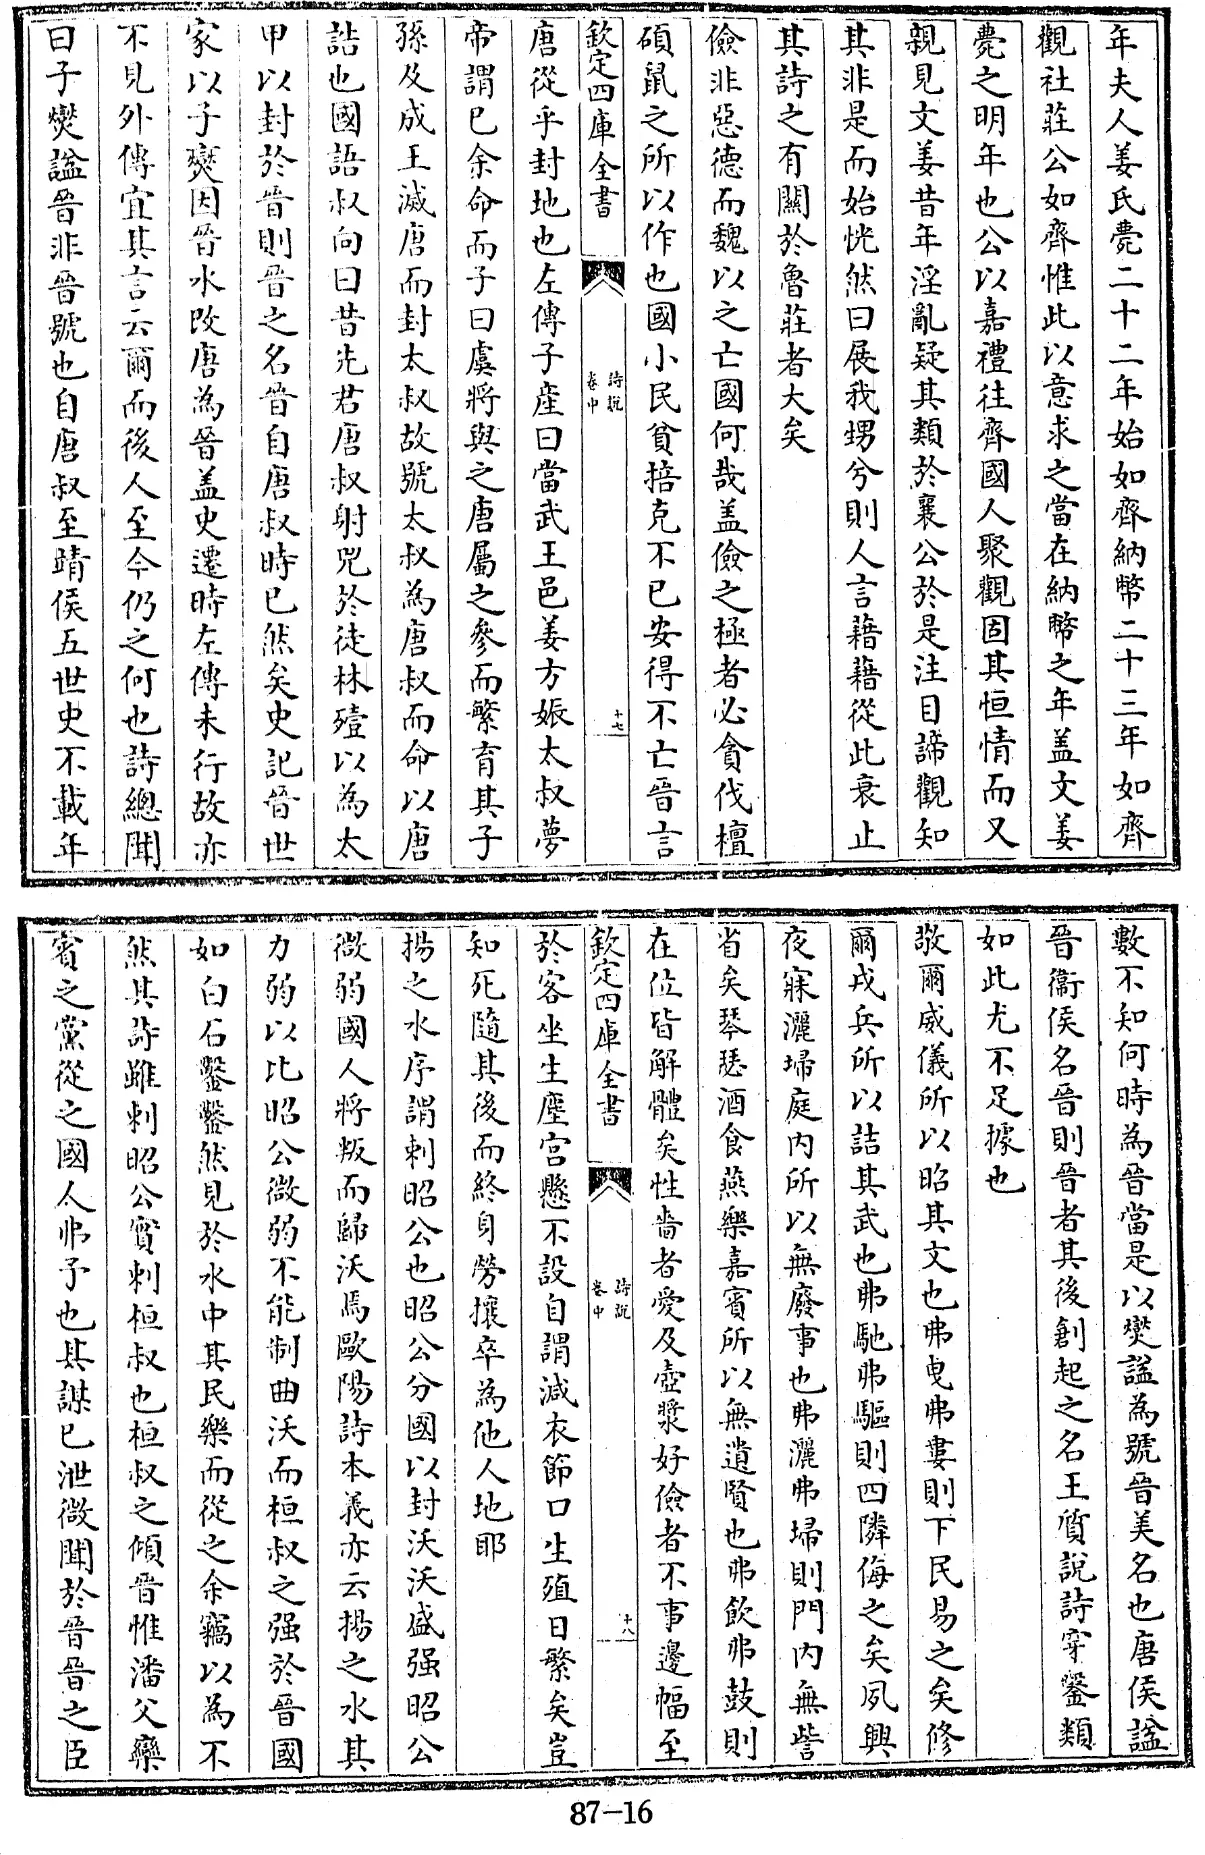 年夫人姜氏薨二十二年始如齊納幣二十三年如齊
觀社莊公如齊惟此以意求之當在納幣之年盖文姜
薨之明年也公以嘉禮往齊國人聚觀固其恒情而又
親見文姜昔年淫亂疑其類於襄公於是注目諦觀知
其非是而始恍然曰展我甥兮則人言藉藉從此衰止
其詩之有關於魯莊者大矣
儉非惡德而魏以之亡國何哉盖儉之極者必貪伐檀
碩鼠之所以作也國小民貧掊克不已安得不亡晉言
欽定四庫全書
詩說
卷中
十七
唐從乎封地也左傳子產曰當武王邑姜方娠太叔夢
帝謂已余命而子曰虞將與之唐屬之參而繁育其子
孫及成王滅唐而封太叔故號太叔為唐叔而命以唐
誥也國語叔向曰昔先君唐叔射兕於徒林殪以為大
甲以封於晉則晉之名晉自唐叔時已然矣史記晉世
家以子燮因晉水改唐為晉盖史遷時左傳未行故亦
不見外傳宜其言云爾而後人至今仍之何也詩總聞
曰子燮謚晉非晉號也自唐叔至靖侯五世史不載年
數不知何時為晉當是以燮謚為號晉美名也唐侯謚
晉衞侯名晉則晉者其後創起之名王質說詩穿鑿類
如此尤不足據也
敬爾威儀所以昭其文也弗曳弗婁則下民易之矣修
爾戎兵所以詰其武也弗馳弗驅則四隣侮之矣夙興
夜寐灑埽庭内所以無廢事也弗灑弗埽則門内無訾
省矣琴瑟酒食燕樂嘉賓所以無遺賢也弗飲弗鼓則
在位皆解體矣性嗇者愛及壺漿好儉者不事邊幅至
欽定四庫全書
詩說
卷中
十八
於客坐生塵宫懸不設自謂減衣節口生殖日繁矣豈
知死隨其後而終身勞攘卒為他人地耶
揚之水序謂刺昭公也昭公分國以封沃沃盛强昭公
微弱國人將叛而歸沃焉歐陽詩本義亦云揚之水其
力弱以比昭公微弱不能制曲沃而桓叔之强於晉國
如白石鑿鑿然見於水中其民樂而從之余竊以為不
然其詩雖刺昭公實刺桓叔也桓叔之傾晉惟潘父欒
賓之黨從之國人弗予也其謀已泄微聞於晉晉之臣
87-16